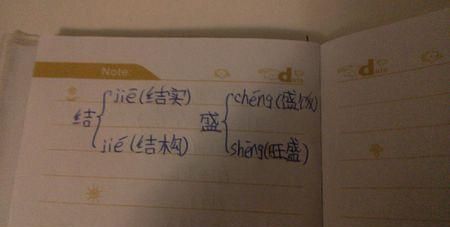 Note
结 jiē(结实)
jié(结构)
盛 chéng(盛饭)
shèng(旺盛)